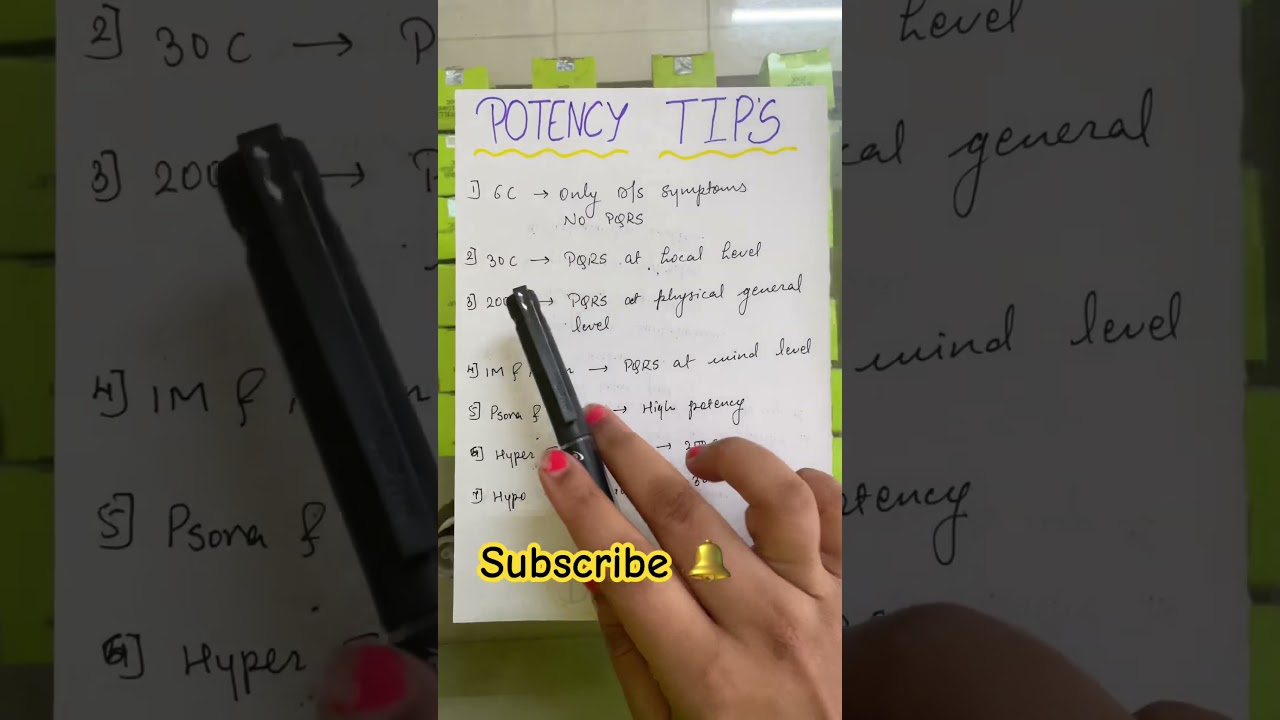 POTENCY TIP'S
1] 6C → Only D/S Symptoms
NO PQRS
2] 30C → PQRS at Local Level
3] 200 → PQRS at physical general
level
4] 1M & → PQRS at mind level
5] Psora & → High potency
6] Hyper → 200
7] Hypo
Subscribe